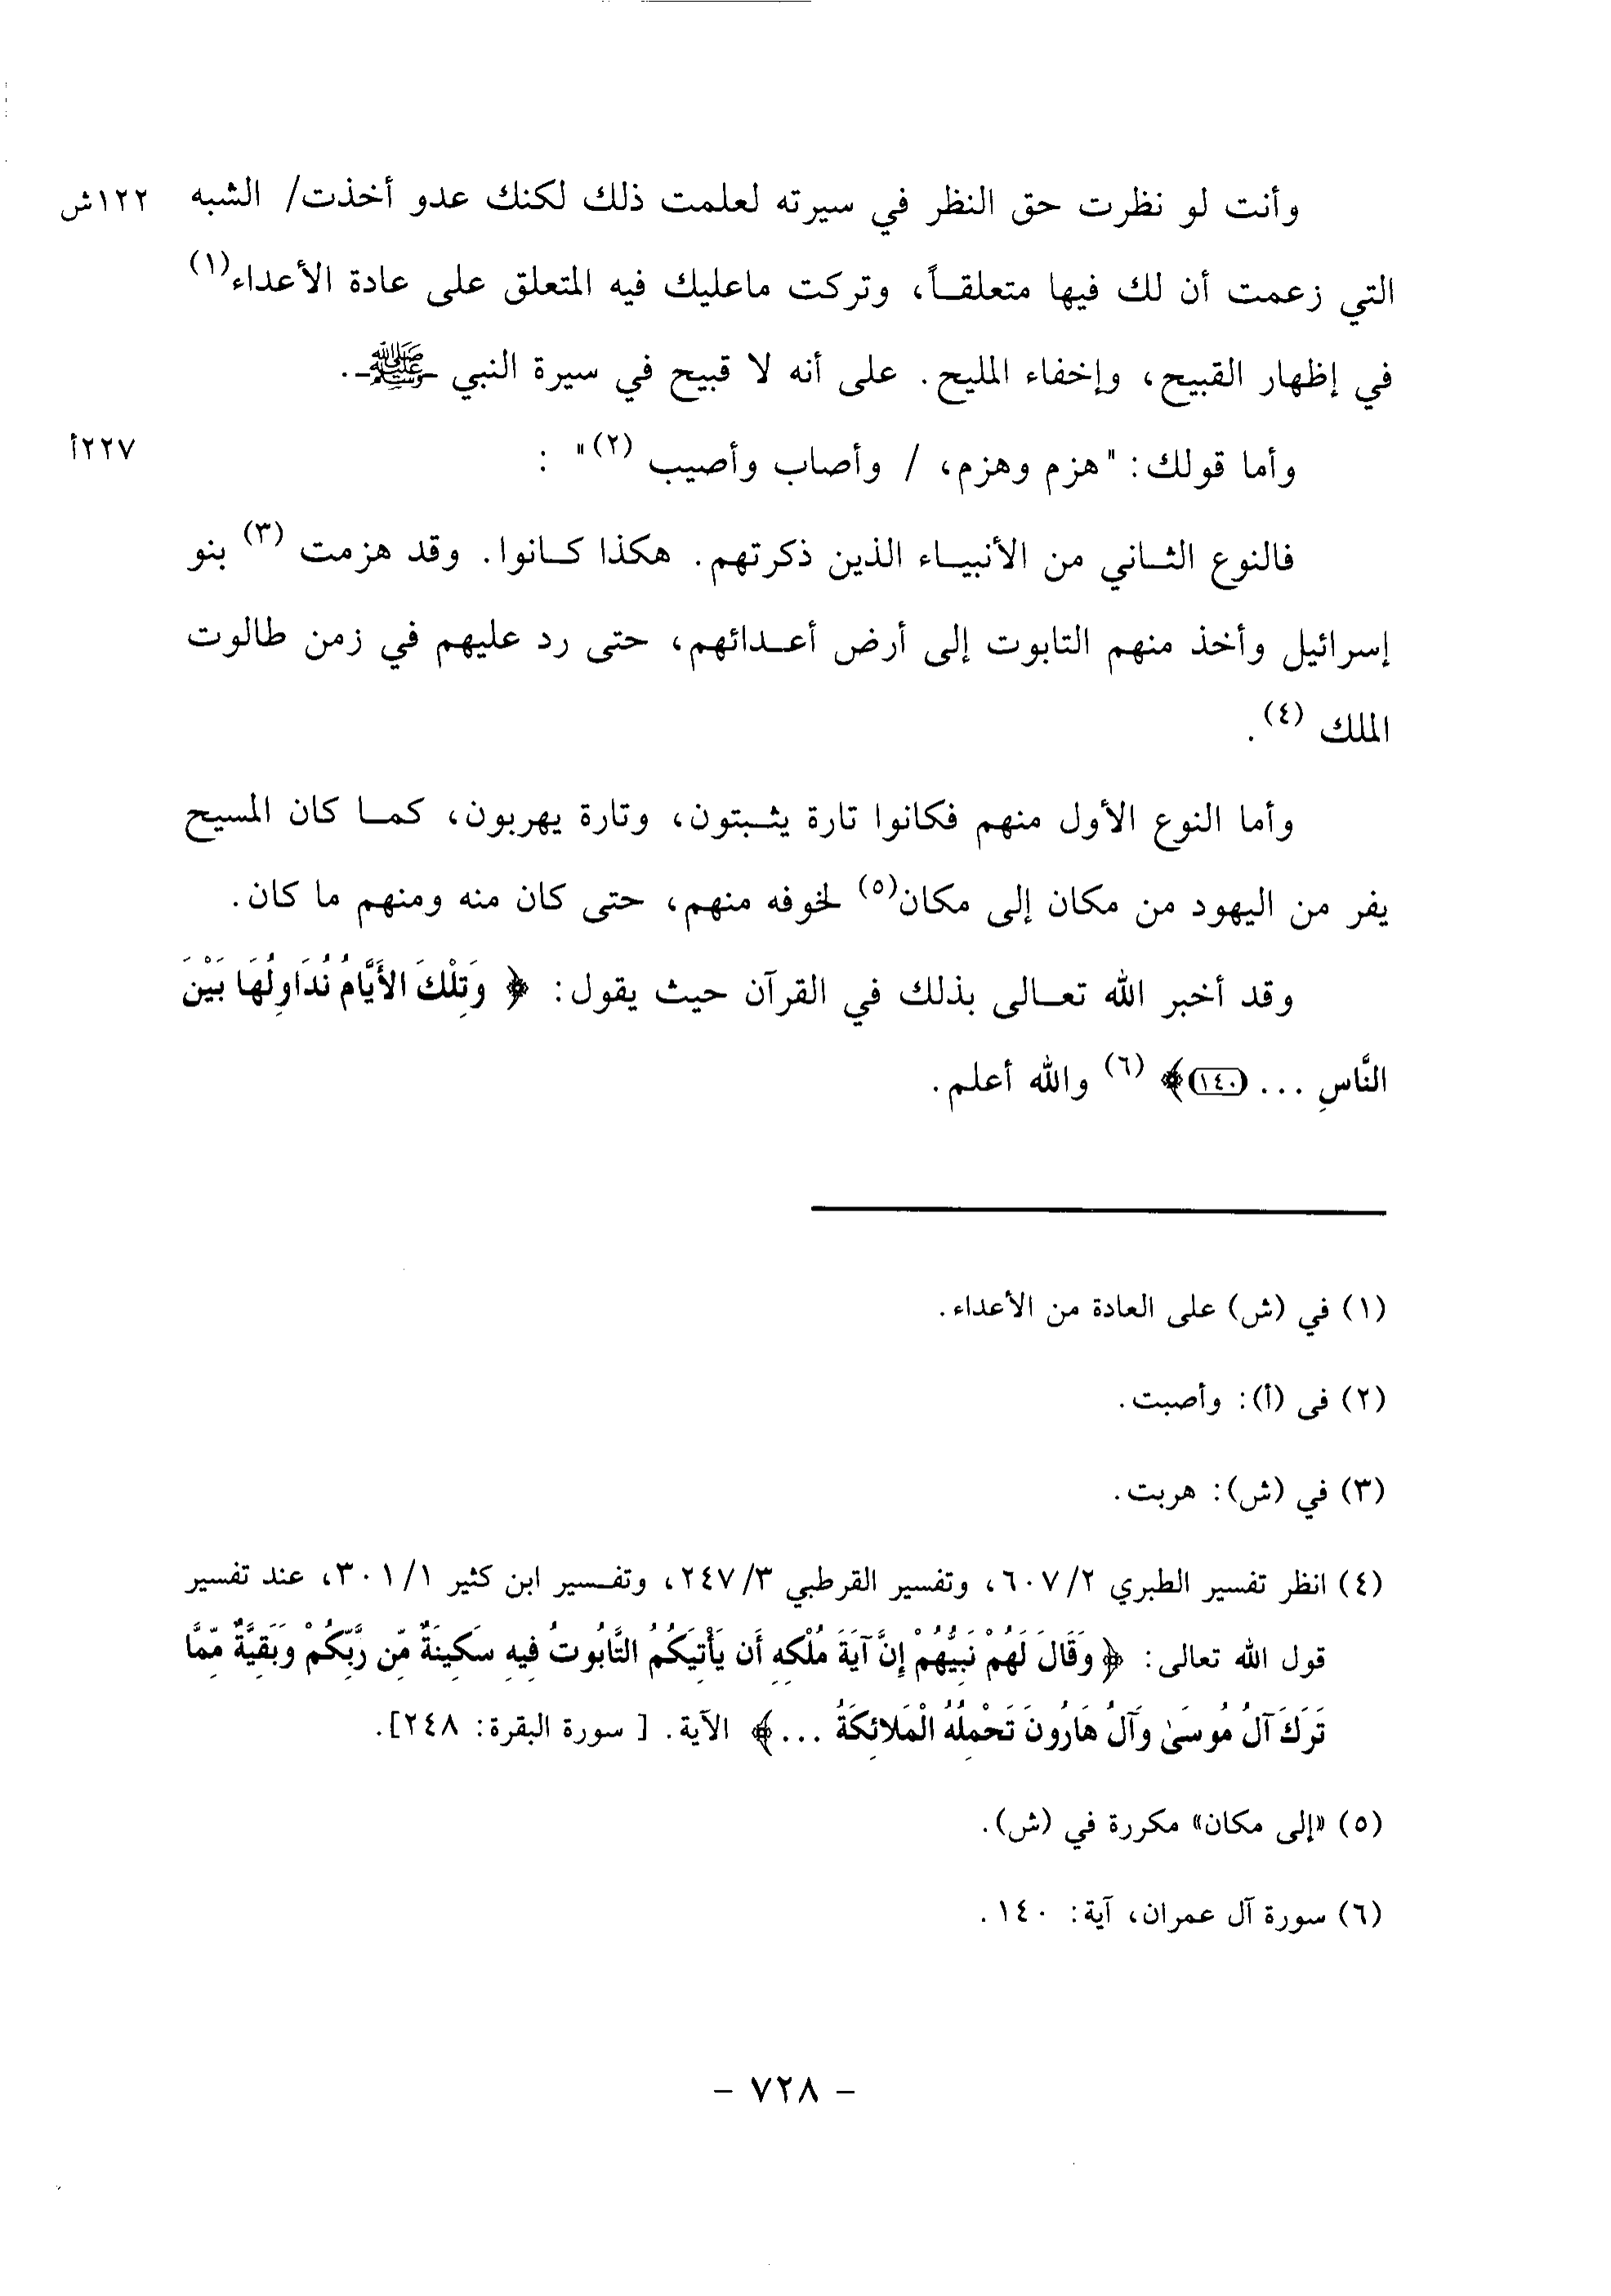 وأنت لو نظرت حق النظر في سيرته لعلمت ذلك لكنك عدو أخذت/ الشبه ١٢٢ش
التي زعمت أن لك فيها متعلقاً، وتركت ماعليك فيه المتعلق على عادة الأعداء(١)
في إظهار القبيح، وإخفاء المليح. على أنه لا قبيح في سيرة النبي -ﷺ-.
وأما قولك: "هزم وهزم، / وأصاب وأصيب (٢)" : ٢٢٧أ
فالنوع الثاني من الأنبياء الذين ذكرتهم. هكذا كانوا. وقد هزمت (٣) بنو
إسرائيل وأخذ منهم التابوت إلى أرض أعدائهم، حتى رد عليهم في زمن طالوت
الملك (٤).
وأما النوع الأول منهم فكانوا تارة يثبتون، وتارة يهربون، كما كان المسيح
يفر من اليهود من مكان إلى مكان(٥) لخوفه منهم، حتى كان منه ومنهم ما كان.
وقد أخبر الله تعالى بذلك في القرآن حيث يقول: ﴿ وَتِلْكَ الأَيَّامُ نُدَاوِلُهَا بَيْنَ
النَّاسِ ... (١٤٠)﴾ (٦) والله أعلم.
(١) في (ش) على العادة من الأعداء.
(٢) فى (أ): وأصبت.
(٣) في (ش): هربت.
(٤) انظر تفسير الطبري ٦٠٧/٢، وتفسير القرطبي ٢٤٧/٣، وتفسير ابن كثير ٣٠١/١، عند تفسير
قول الله تعالى: ﴿ وَقَالَ لَهُمْ نَبِيُّهُمْ إِنَّ آيَةَ مُلْكِهِ أَن يَأْتِيَكُمُ التَّابُوتُ فِيهِ سَكِينَةٌ مِّن رَّبِّكُمْ وَبَقِيَّةٌ مِّمَّا
تَرَكَ آلُ مُوسَىٰ وَآلُ هَارُونَ تَحْمِلُهُ الْمَلائِكَةُ ...﴾ الآية. [ سورة البقرة: ٢٤٨].
(٥) «إلى مكان» مكررة في (ش).
(٦) سورة آل عمران، آية: ١٤٠.
- ٧٢٨ -